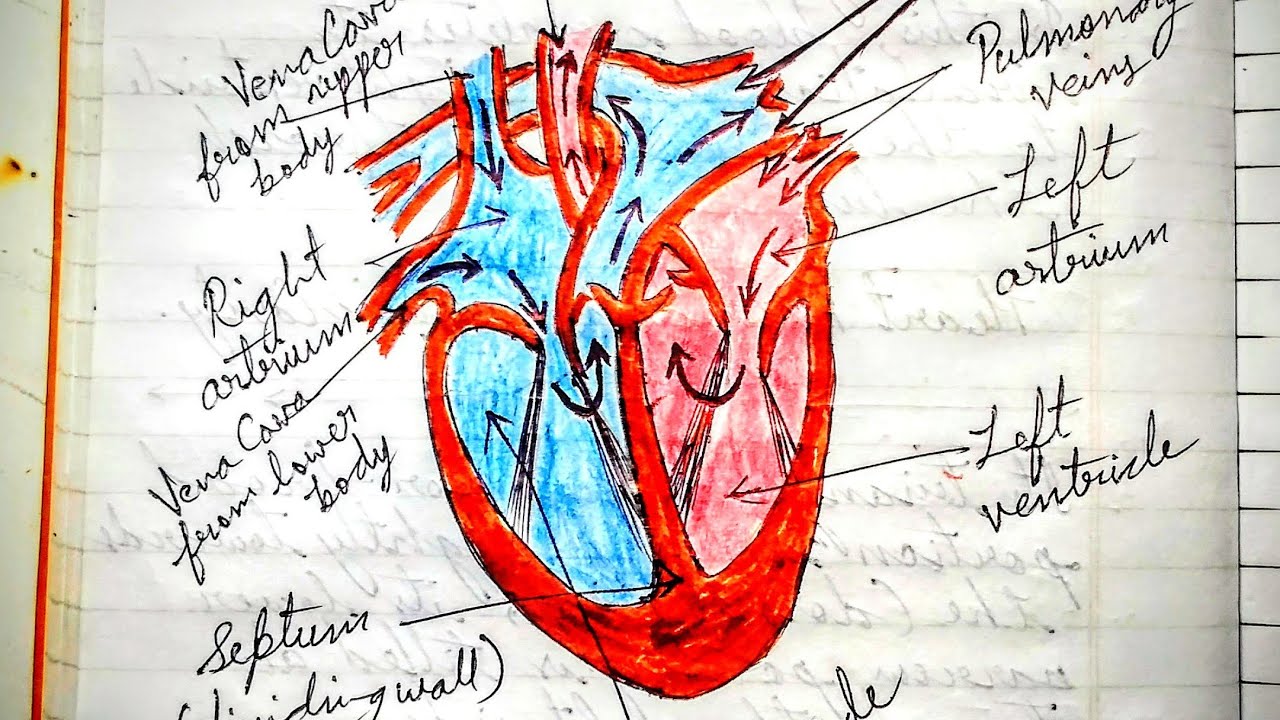 Vena Cava
from upper
body
Pulmonary
veins
Left
artrium
Right
artrium
Vena Cava
from lower
body
Left
ventricle
Septum
(dividing wall)